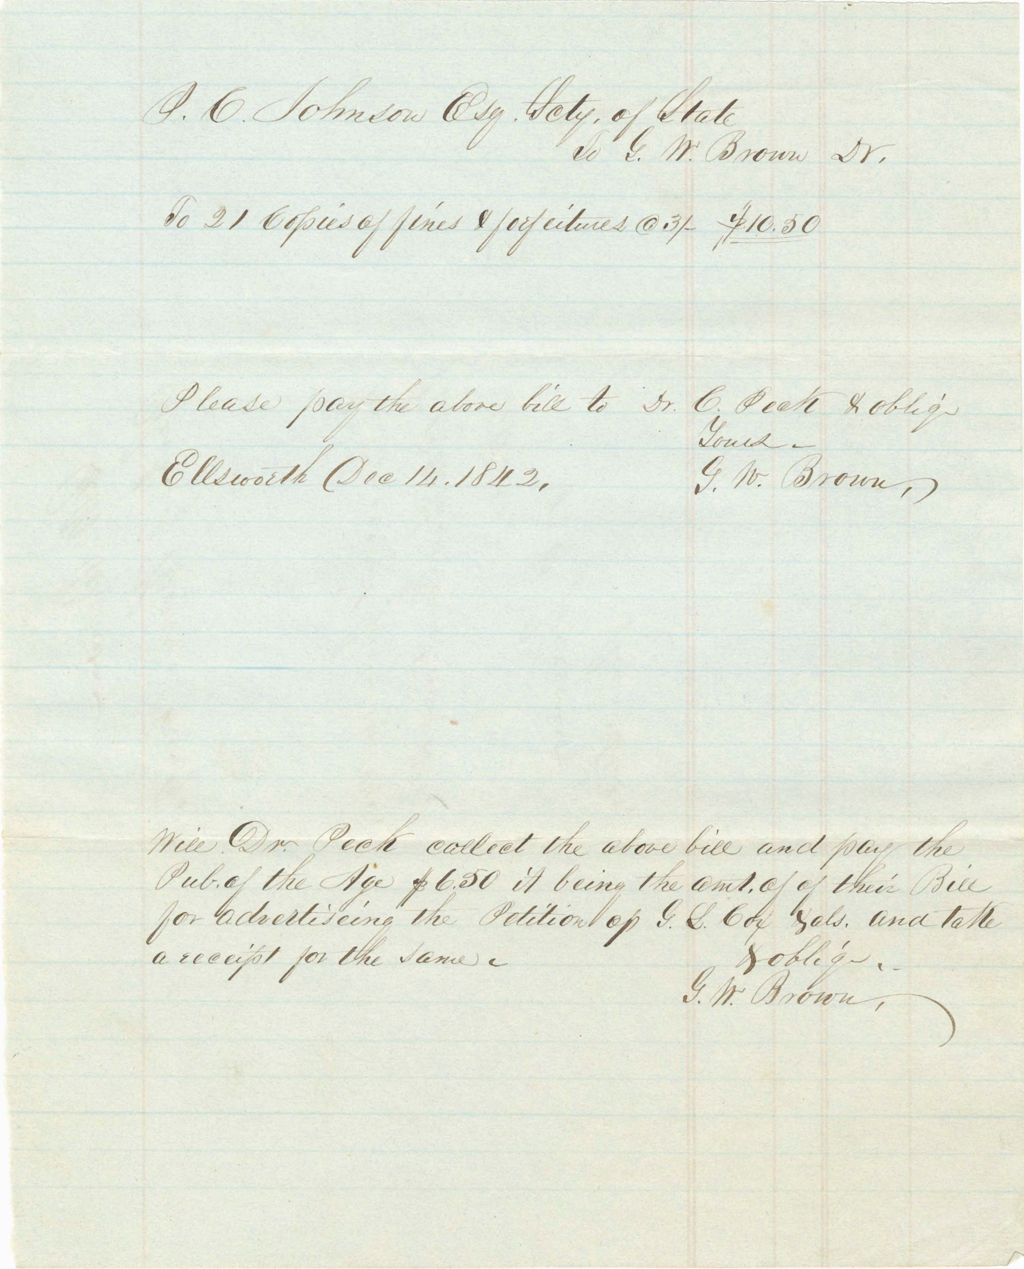 P. C. Johnson Esq. Scty. of State
To G. W. Brown Dr.
To 21 Copies of fines & forfeitures @ 3/- $10.50
Please pay the above bill to Dr. C. Peck & oblige
Yours -
Ellsworth Dec 14. 1842. G. W. Brown,
Will Dr. Peck collect the above bill and pay the
Pub. of the Age $6.50 it being the amt. of of their Bill
for advertiseing the Petition of G. L. Cox & als. and take
a receipt for the same - & oblige -
G. W. Brown,